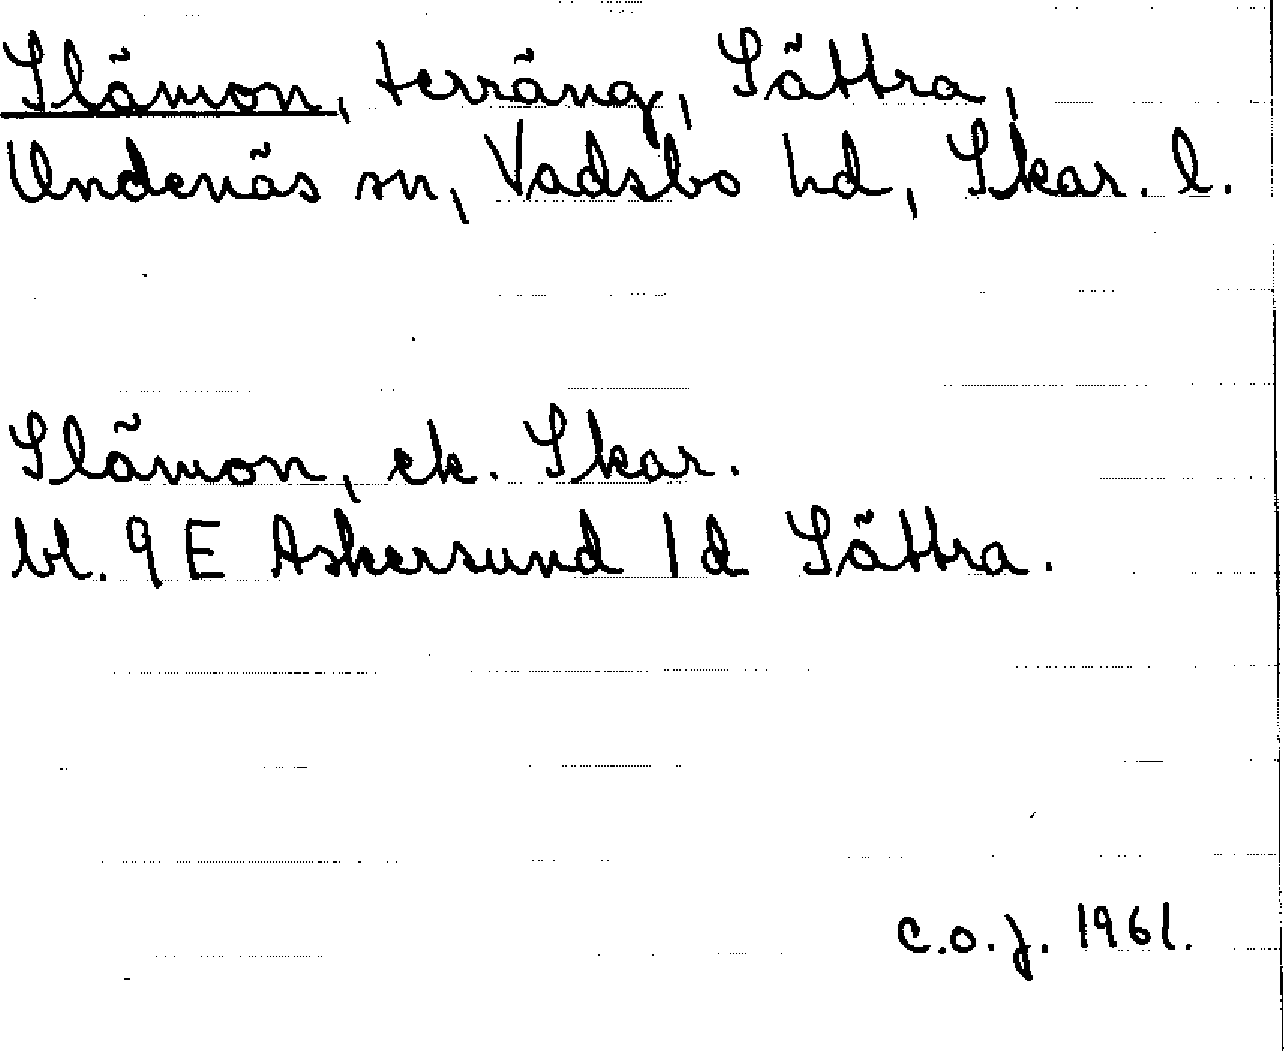 Slämon, terräng, Sättra,
Undenäs sn, Vadsbo hd, Skar. l.
Slämon, ek. Skar.
bl. 9 E Askersund 1 d Sättra.
C.O.J. 1961.